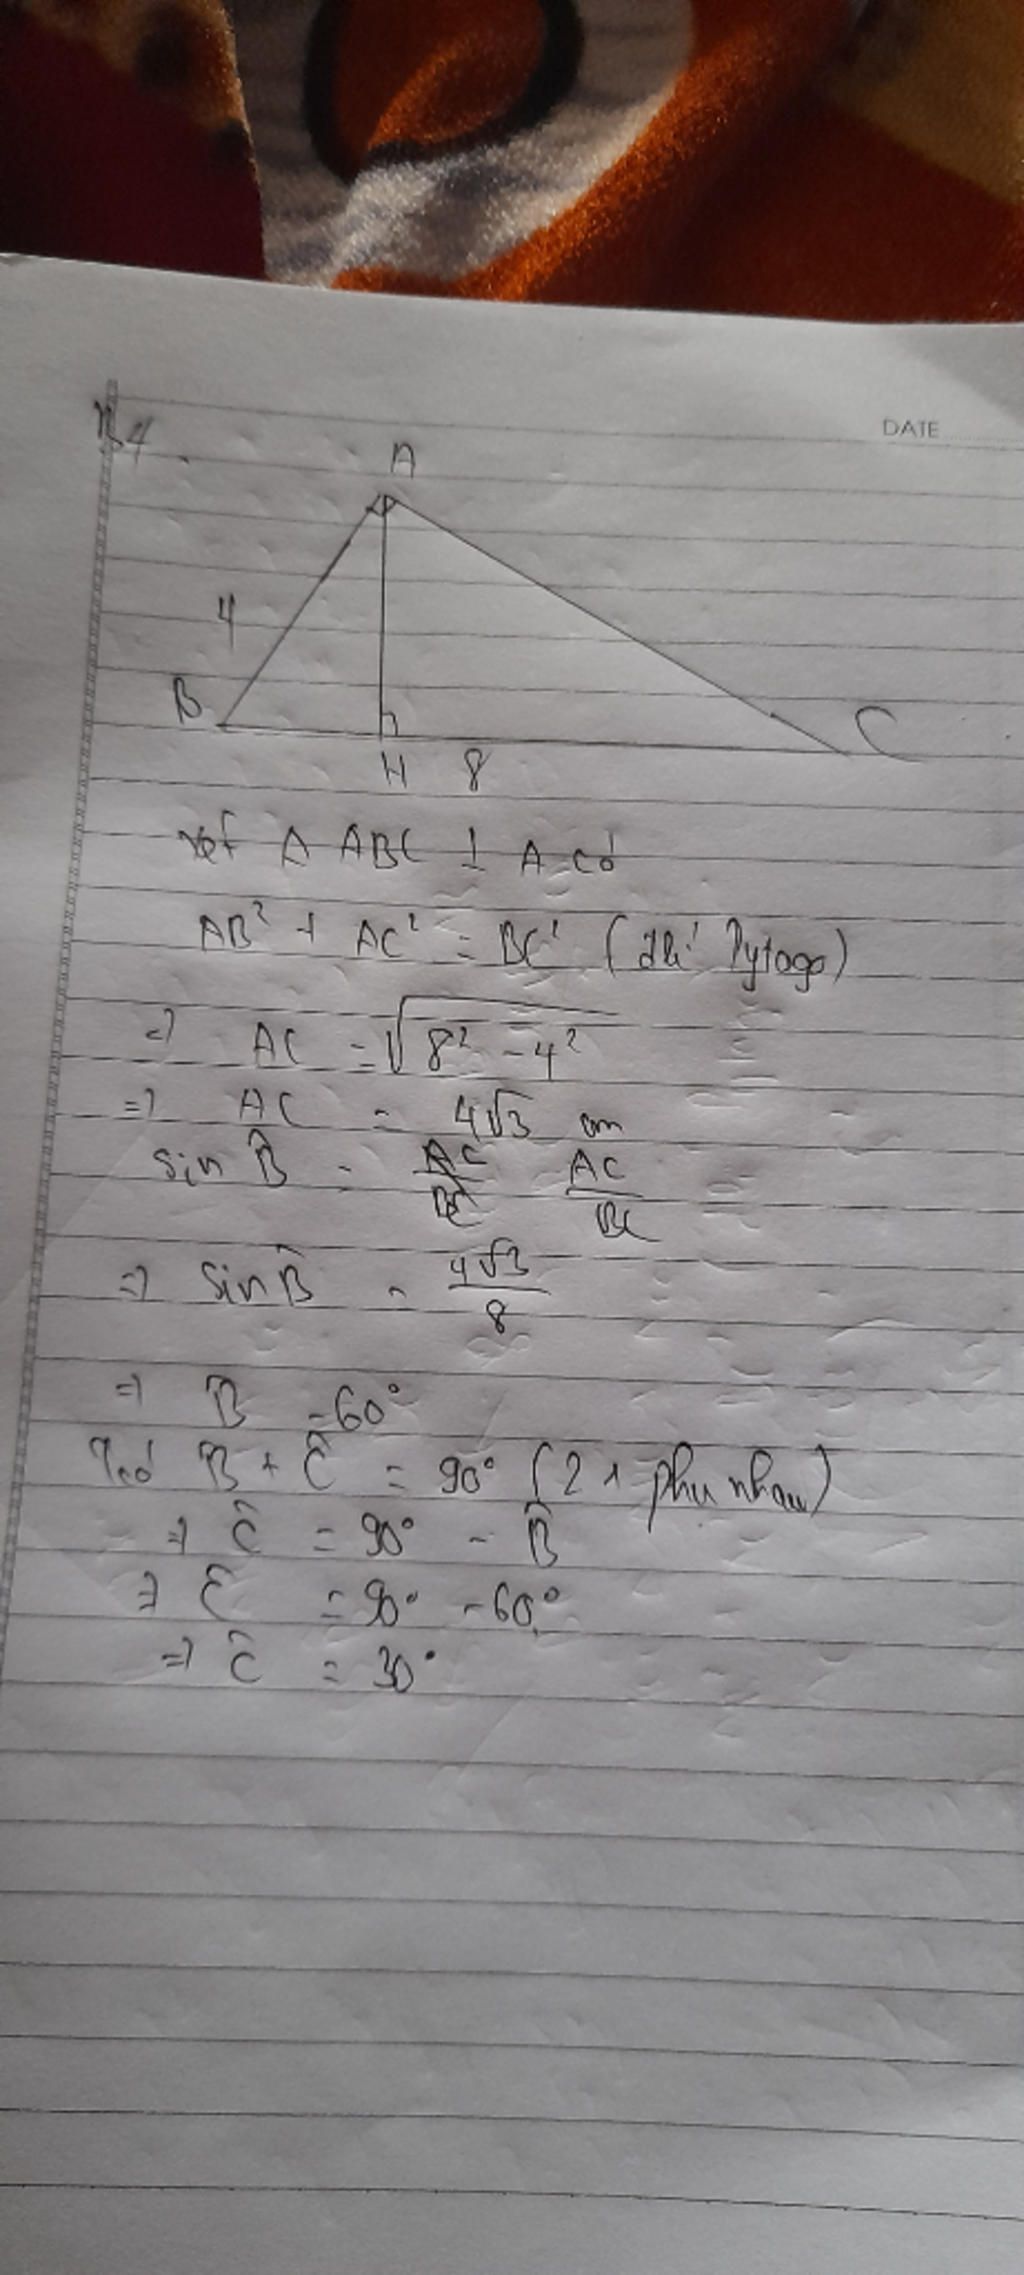 B4.
DATE
A
4
B
C
H 8
xét Δ ABC ⊥ A có
AB² + AC² = BC² (đlí Pytago)
=> AC = √8² - 4²
=> AC = 4√3 cm
sin B̂ = AC/BC
=> sin B̂ = 4√3/8
=> B̂ = 60°
Tcó B̂ + Ĉ = 90° (2 phụ nhau)
=> Ĉ = 90° - B̂
=> Ĉ = 90° - 60°
=> Ĉ = 30°